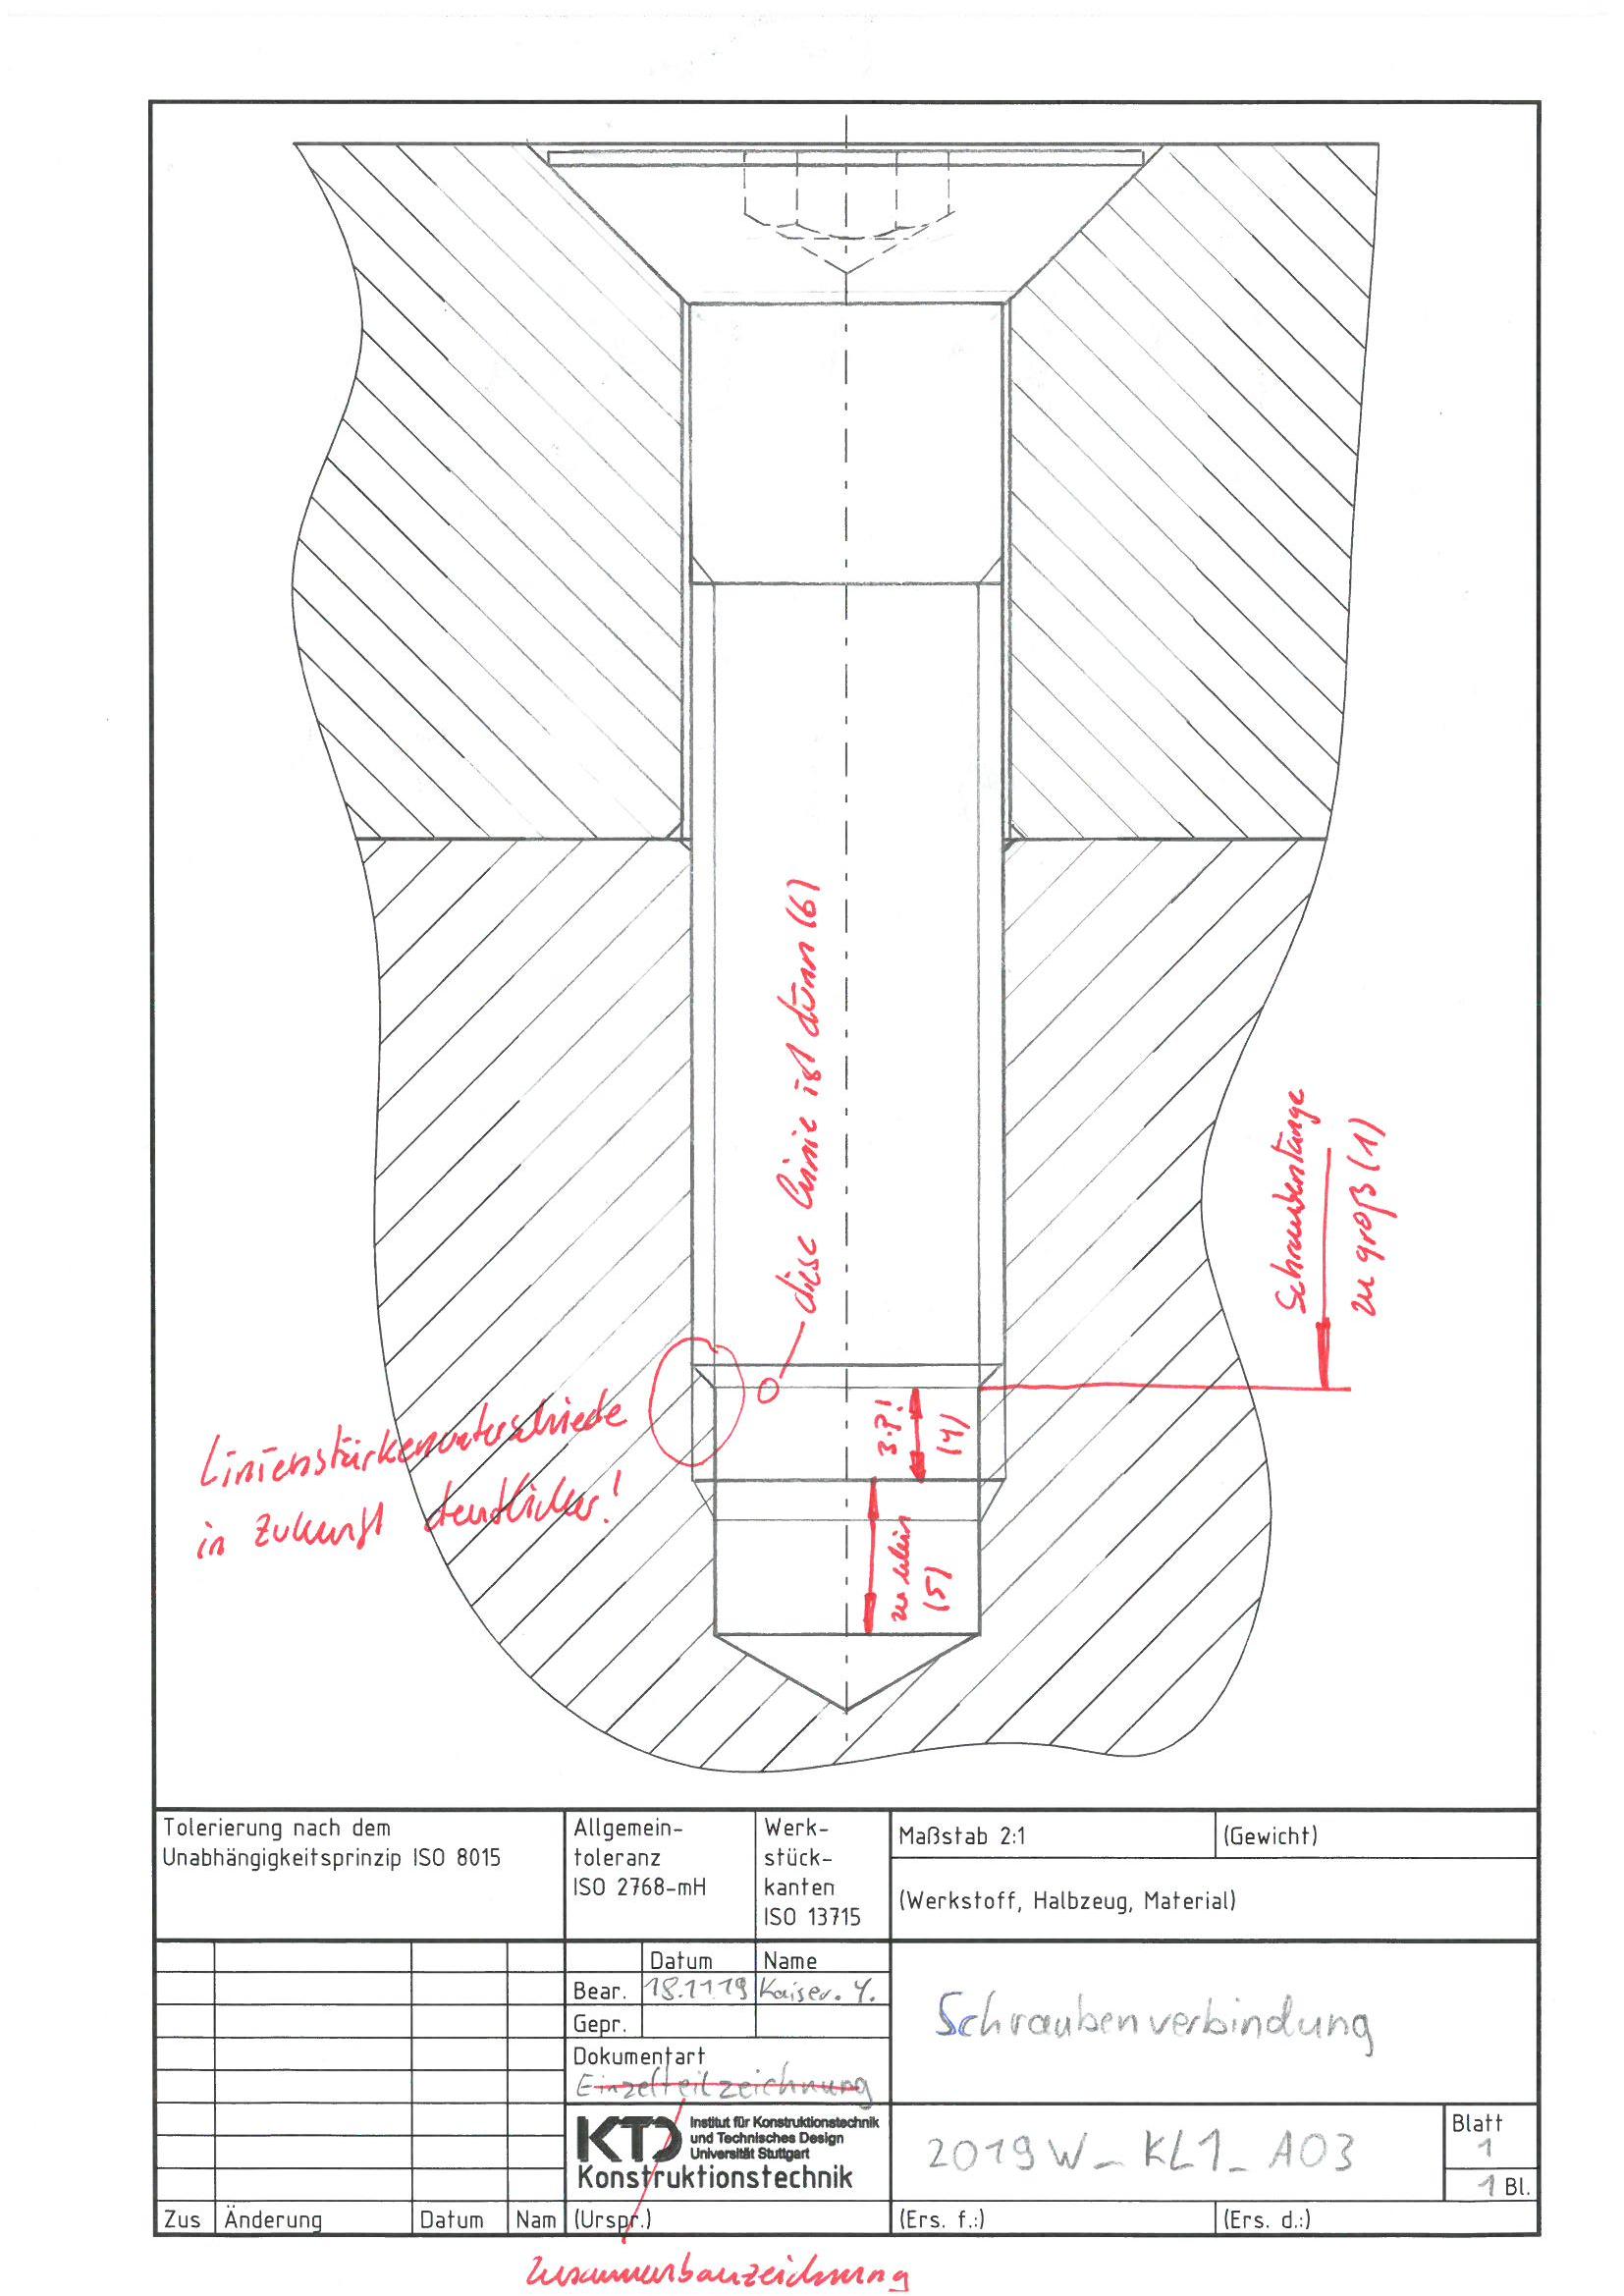 diese Linie ist dünn (6)
Schraubenlänge
zu groß (1)
Linienstärkenunterschiede
in Zukunft deutlicher!
3·P!
(4)
zu klein
(5)
Tolerierung nach dem
Unabhängigkeitsprinzip ISO 8015
Allgemein-
toleranz
ISO 2768-mH
Werk-
stück-
kanten
ISO 13715
Maßstab 2:1
(Gewicht)
(Werkstoff, Halbzeug, Material)
Datum
Name
Bear.
18.11.19
Kaiser. Y.
Gepr.
Dokumentart
Einzelteilzeichnung
Schraubenverbindung
KTD
Institut für Konstruktionstechnik
und Technisches Design
Universität Stuttgart
Konstruktionstechnik
2019W_KL1_A03
Blatt
1
1 Bl.
Zus
Änderung
Datum
Nam
(Urspr.)
(Ers. f.:)
(Ers. d.:)
Zusammenbauzeichnung